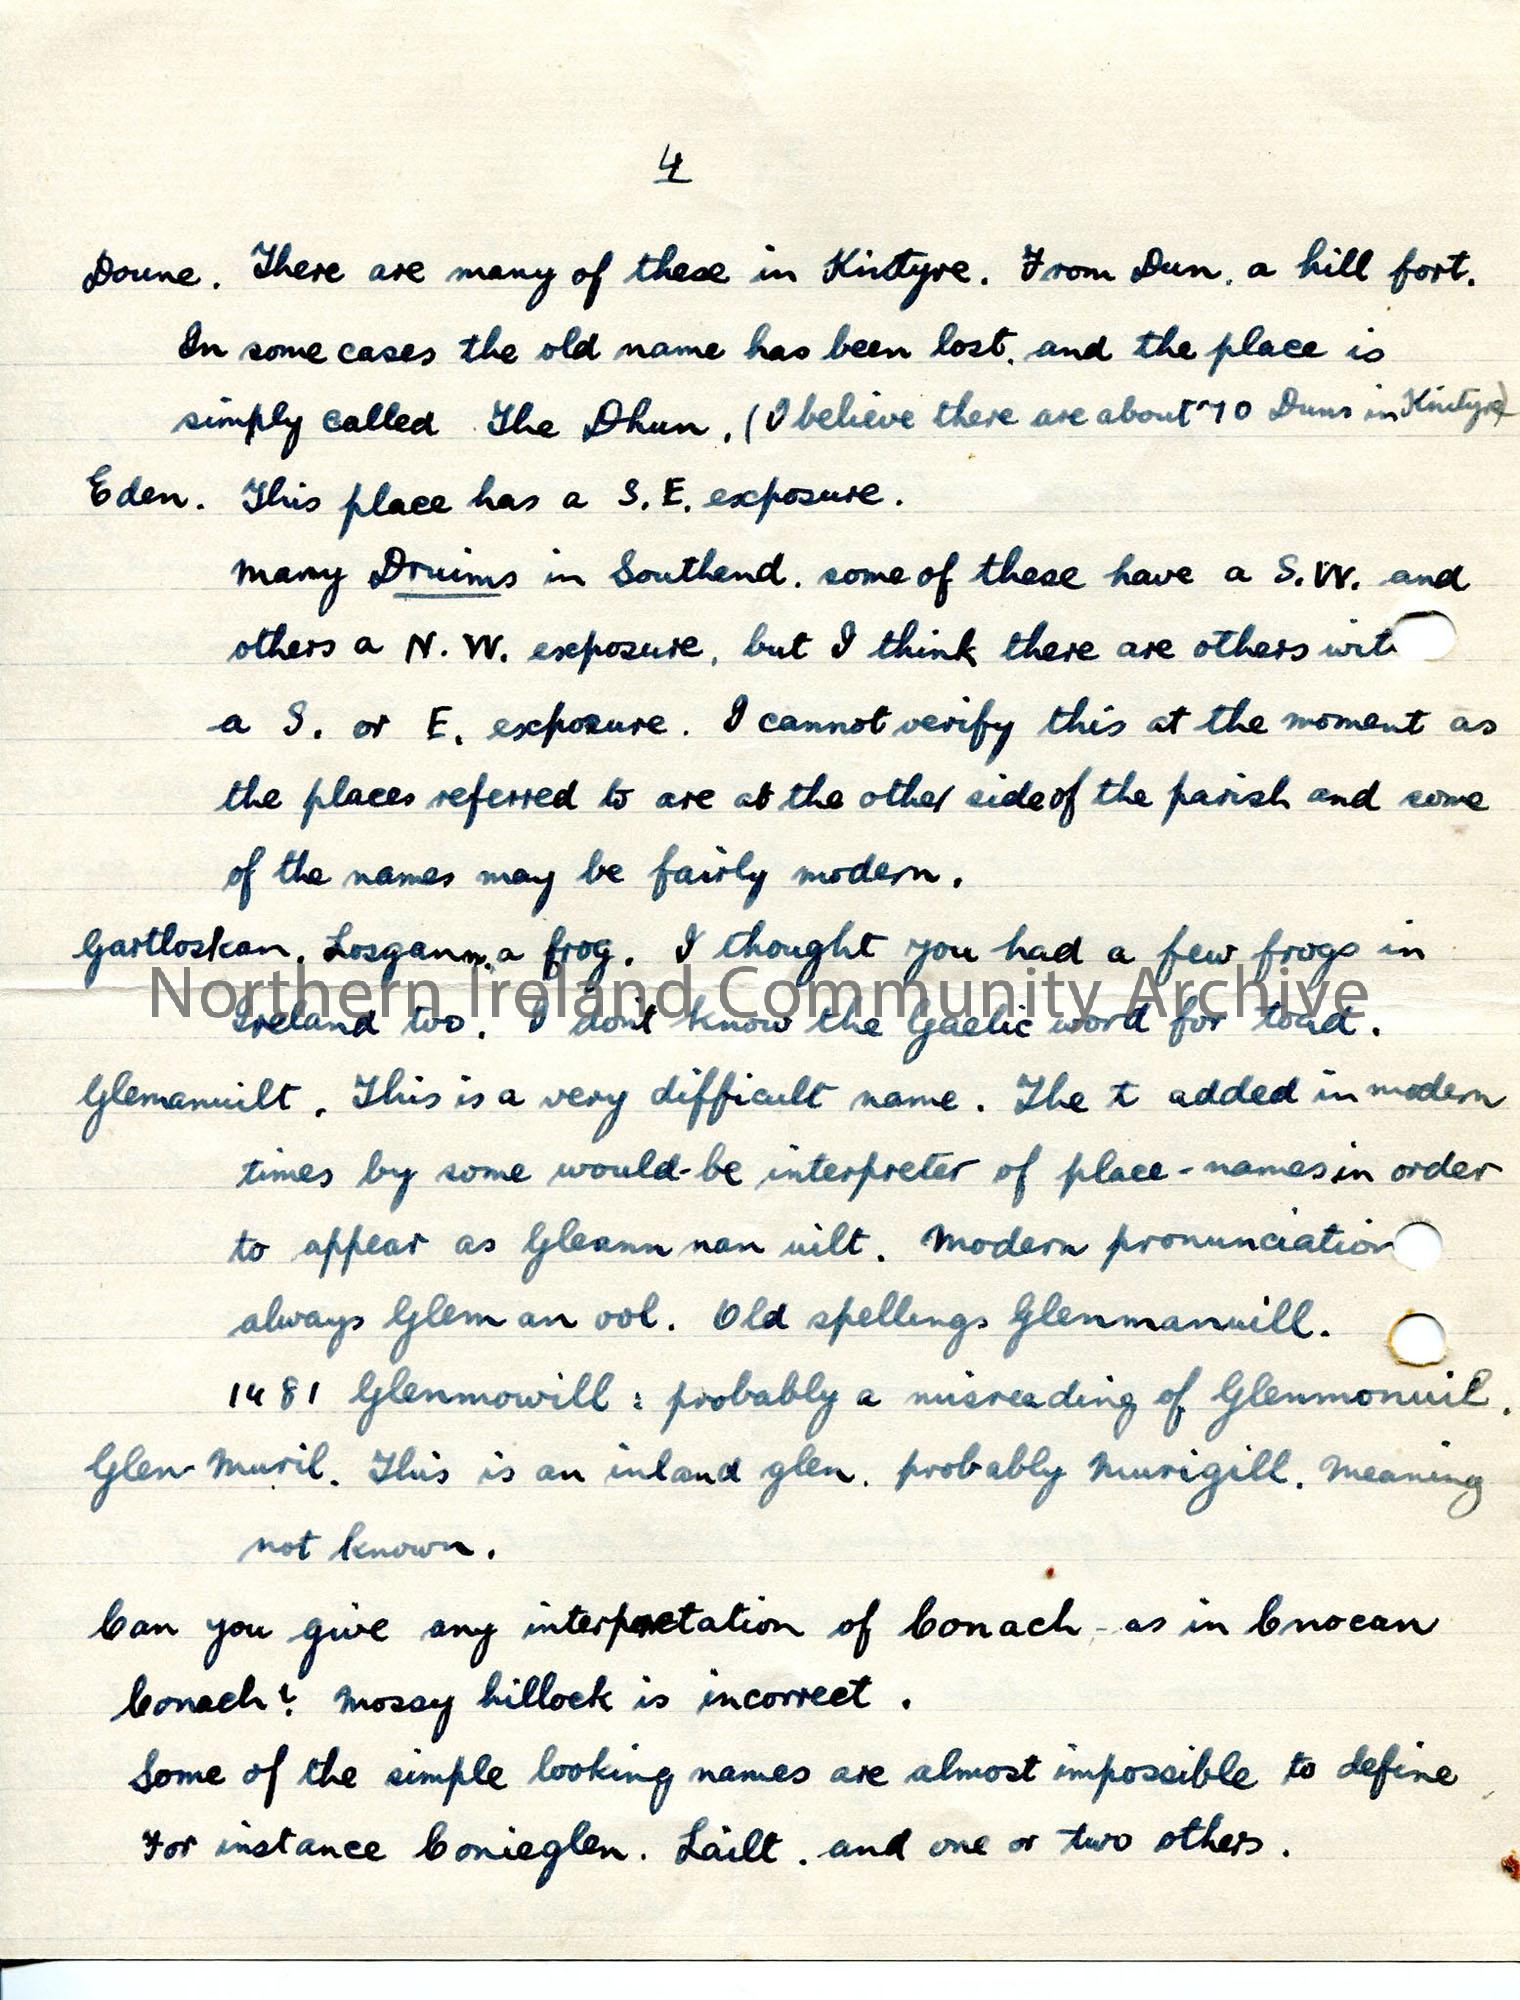 4
Doune. There are many of these in Kintyre. From Dun, a hill fort.
In some cases the old name has been lost, and the place is
simply called The Dhun. (I believe there are about 70 Duns in Kintyre)
Eden. This place has a S.E. exposure.
Many Druims in Southend. some of these have a S.W. and
others a N.W. exposure, but I think there are others with
a S. or E. exposure. I cannot verify this at the moment as
the places referred to are at the other side of the parish and some
of the names may be fairly modern.
Gartloskan. Losgann, a frog. I thought you had a few frogs in
Northern Ireland Community Archive
Ireland too. I don't know the Gaelic word for toad.
Glemanuilt. This is a very difficult name. The t added in modern
times by some would-be interpreter of place-names in order
to appear as Gleann nan uilt. Modern pronunciation
always Glem an ool. Old spellings Glenmanuill.
1481 Glenmowill: probably a misreading of Glenmonuil.
Glen Muril. This is an inland glen. probably Murigill. Meaning
not known.
Can you give any interpretation of Conach - as in Cnocan
Conach? Mossy hillock is incorrect.
Some of the simple looking names are almost impossible to define
For instance Conieglen. Lailt. and one or two others.